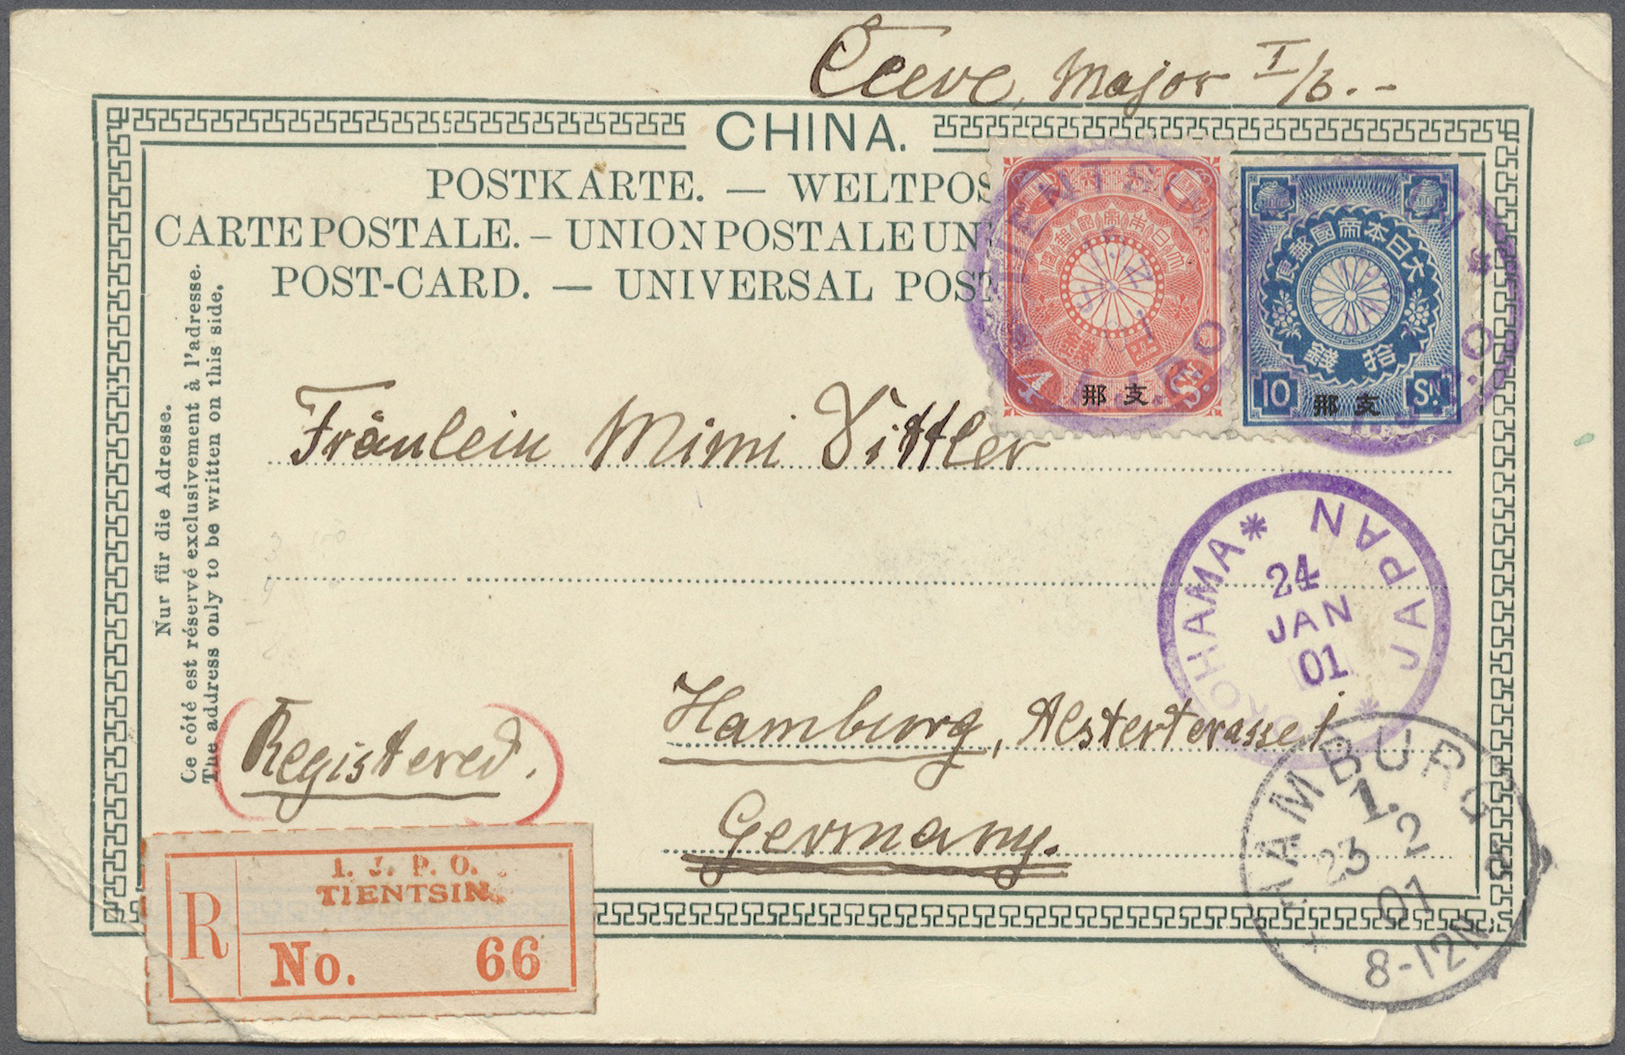 Major I/6.--
CHINA.
POSTKARTE. — WELTPOS
CARTE POSTALE. – UNION POSTALE UN
POST-CARD. — UNIVERSAL POST
Nur für die Adresse.
Ce côté est réservé exclusivement à l'adresse.
The address only to be written on this side.
大日本帝國郵便
四錢
4 Sn.
支那
大日本帝國郵便
拾錢
10 Sn.
支那
TIENTSIN
I.J.P.O.
Fräulein Mimi Vittler
YOKOHAMA * JAPAN *
24
JAN
01
Hamburg, Alsterterasse 1
Registered.
Germany.
HAMBURG
1.
23 2
01
8-12N
I. J. P. O.
TIENTSIN.
R
No. 66